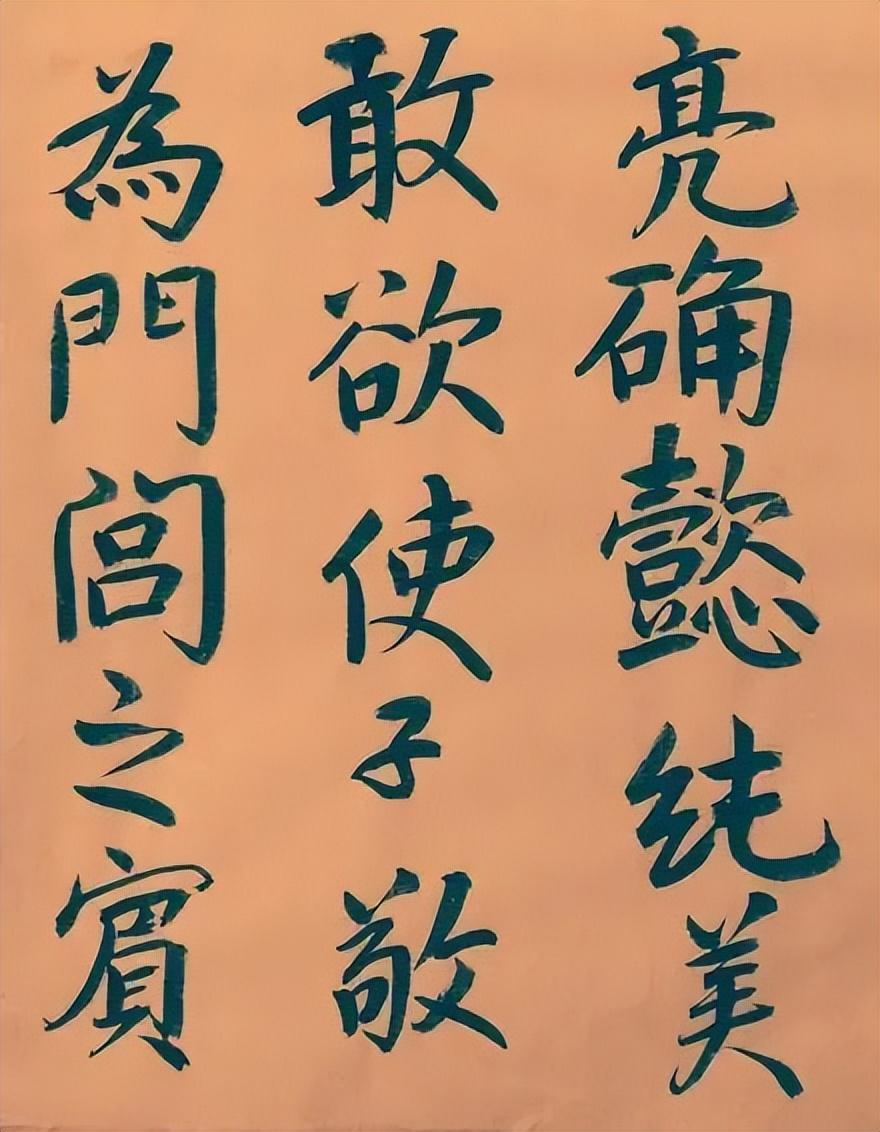 亮确懿纯美
敢欲使子敬
為門閭之賓